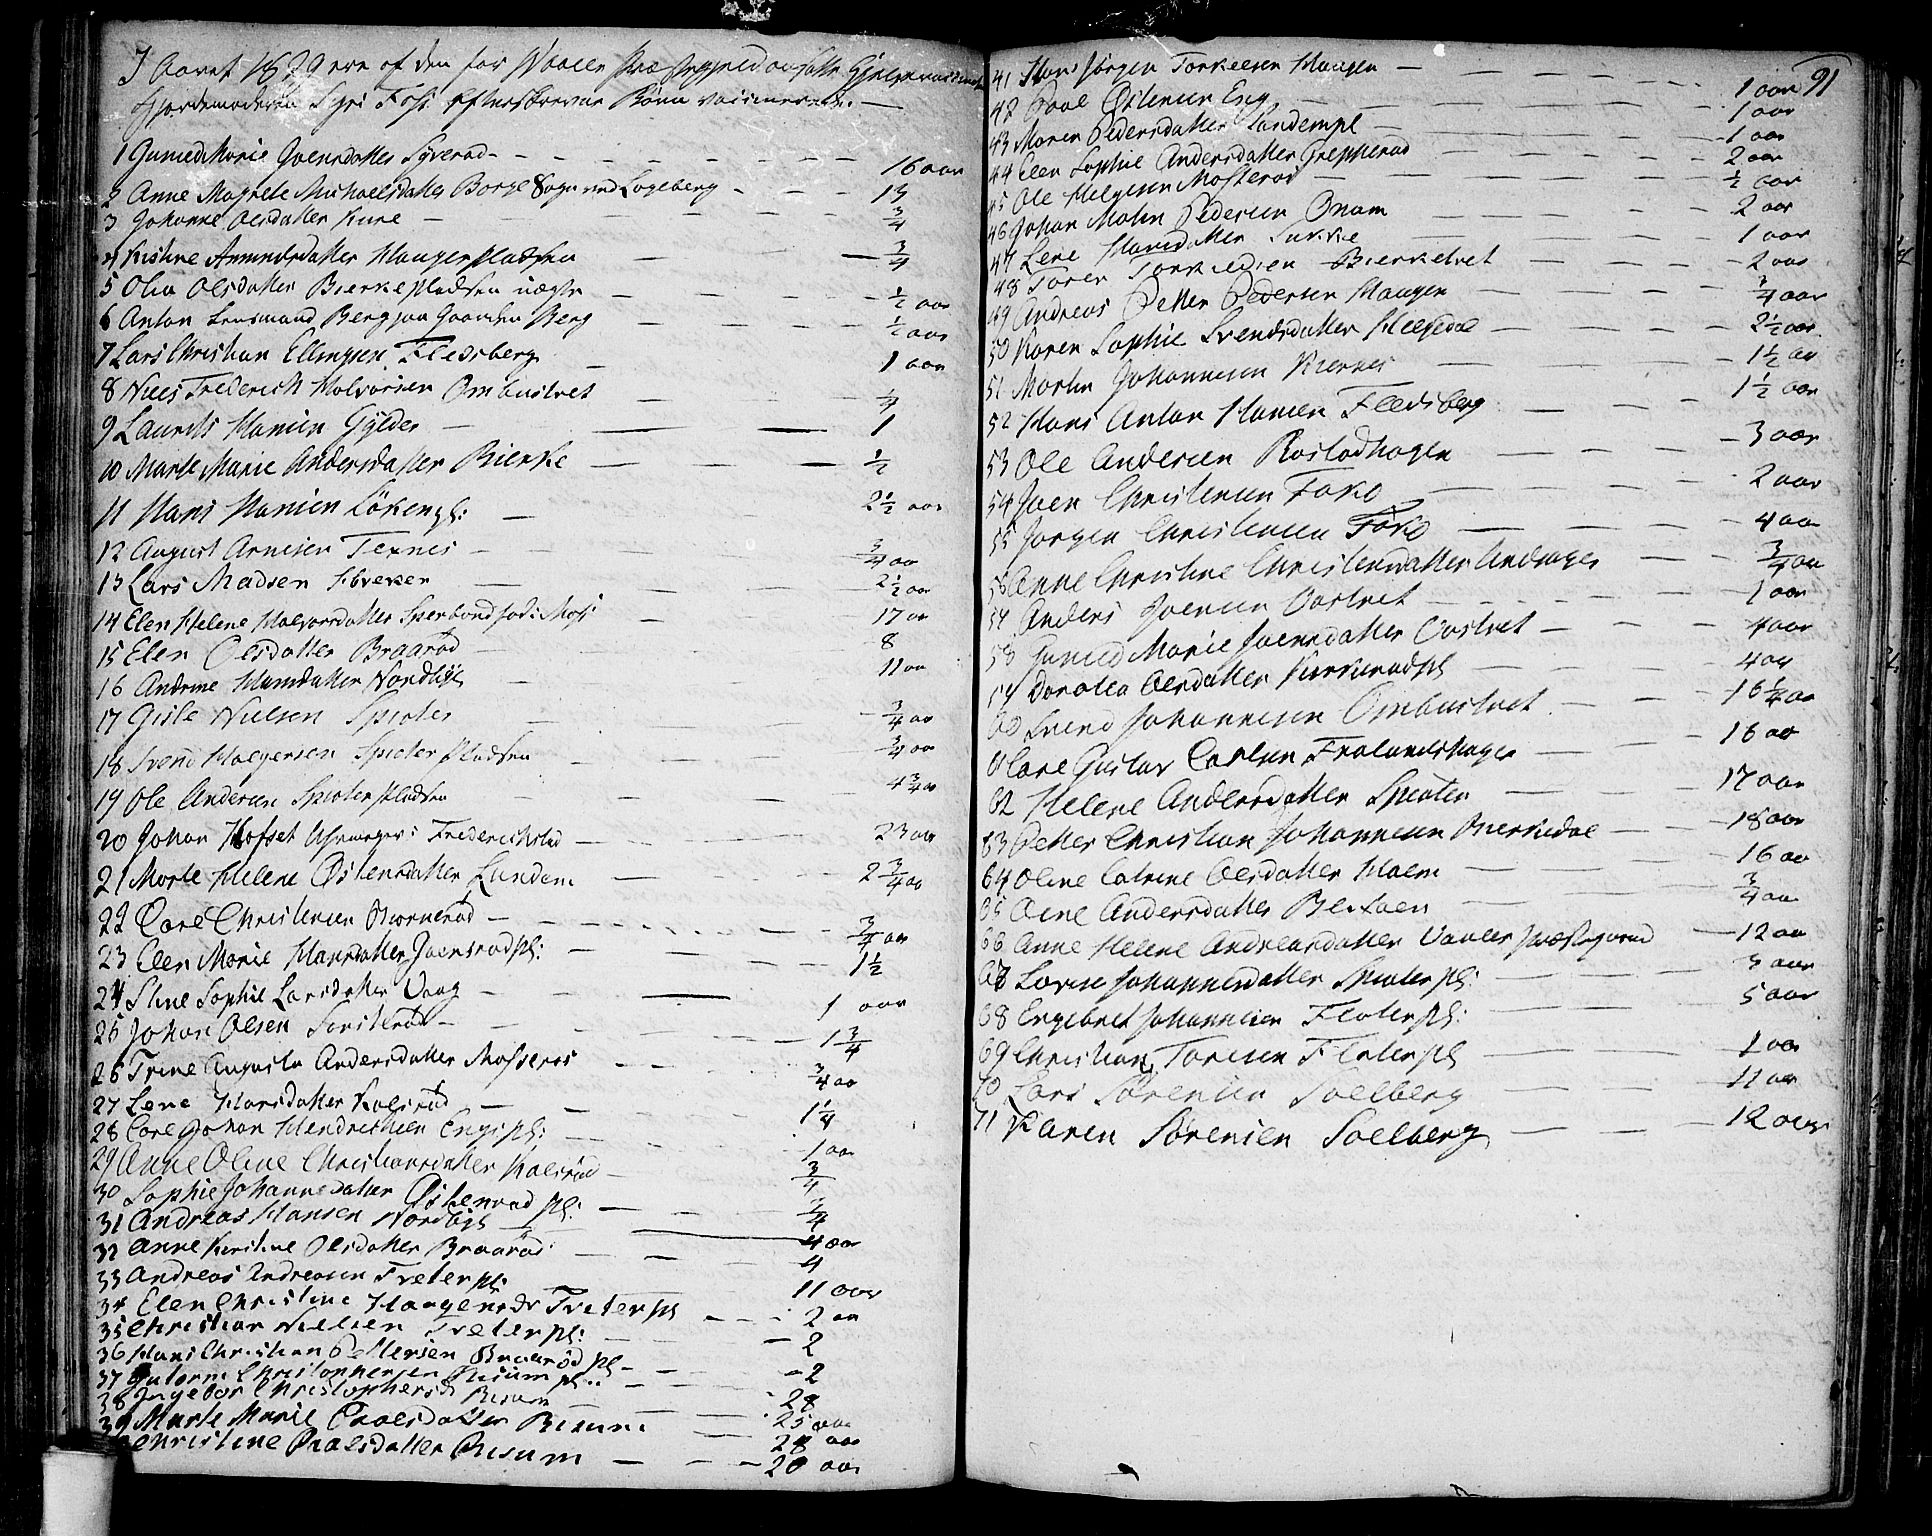 I Aaret 1829 ere af den for Vaaler Præstegjeld ansatte Hjelpevaccinat
Gjordemoderen Syri Foss efterskrevne Børn vaccinerede. —
1 Gunild Marie Joensdatter Syverød - 16 aar
2 Anne Magrete Michaelsdatter Borge Sogn ved Lageberg - 13
3 Johanne Olsdatter Kure - 3/4
4 Kistine Amundsdatter Haugerpladsen - 3/4
5 Olia Olsdatter Bierkepladsen - 1/2 aar
6 Anton Berg paa Gaarden Berg - 1/2 aar
7 Lars Christian Ellingsen Fledsberg - 1 aar
8 Niels Frederich Halvorsen Ombustvet - 1/4
9 Laurits Hansen Gylder - 1
10 Marte Marie Andersdatter Bierke - 1/2
11 Hans Hansen Løkenpl: - 2 1/2 aar
12 August Arnesen Texnes - 3/4 aa
13 Lars Madsen - 2 1/2 aar
14 Elen Helene Halvorsdatter Sperbund Mos: - 17 aa
15 Elen Olsdatter Braarød - 8
16 Andrine Hansdatter Nordbye - 11 aa
17 Gisle Nielsen Spioter - 3/4 aa
18 Svend Holgersen Spioterpladsen - 3/4 aa
19 Ole Andersen Spioterpladsen - 4 3/4 aa
20 Johan Hofset Frederichstad - 23 aar
21 Marte Helene Østensdatter Lundem - 2 3/4 aa
22 Carl Christensen Biørnerød - 3/4 aar
23 Elen Marie Hansdatter Joensrødpl: - 1 1/2
24 Stine Sophie Larsdatter Vaag - 1 aar
25 Johan Olsen Sorsterød - 1 3/4
26 Trine Augusta Andersdatter Mosserøs - 3/4 aa
27 Lene Hansdatter Kalsrød - 1 1/4
28 Carl Johan Hendrichsen Engspl: - 1 aar
29 Anne Oline Christiansdatter Kalsrød - 3/4
30 Sophie Johannesdatter Østenrødpl: - 3/4
31 Andreas Hansen Nordbye - 4 aar
32 Anne Kirstine Olsdatter Braarød - 4
33 Andreas Andreasen Treterpl: - 11 aar
34 Elen Christine Haagensdr Treterpl - 2 aa
35 Christian Nielsen Treterpl: - 2
36 Hans Christian Pettersen Braarødpl - 2
37 Gutorm Christophersen Risumpl: - 28
38 Ingebor Christophersd Risum - 25 aar
39 Marte Marie Paalsdatter Risum - 28 aar
Christine Paalsdatter Risum - 20 aar
91
41 Hans Jørgen Torkelsen Haugen - 1 aar
42 Paul Østensen Eng - 1 aar
43 Maren Pedersdatter Sandempl - 1 aa
44 Elen Sophie Andersdatter Grepperød - 2 aar
45 Ole Helgesen Mosterød - 1/2 aar
46 Johan Malin Pedersen Onum - 2 aar
47 Lene Hansdatter Sukke - 1 aar
48 Toren Torkildsen Bierketvet - 2 aar
49 Andreas Petter Pedersen Haugen - 3/4 aar
50 Karen Sophie Svendsdatter Helgedal - 2 1/2 aar
51 Martin Johannesen Kiernes - 1 1/2 aa
52 Hans Anton Hansen Fledsberg - 1 1/2 aar
53 Ole Andersen Rostadhagen - 3 aar
54 Joen Christensen Foko - 2 aar
55 Jørgen Christensen Foko - 4 aa
56 Anne Christine Christensdatter - 3/4 aa
57 Anders Joensen Oostvet - 1 aar
58 Gunild Marie Joensdatter Oostvet - 4 aar
59 Dorotea Olsdatter Kirkerødpl - 4 aa
60 Svend Johannesen Ombustvet - 16 1/4 aa
61 Carl Gustav Carlsen Frolundshagen - 16 aa
62 Helene Andersdatter Spioten - 17 aar
63 Petter Christian Johannesen Bierkedal - 18 aar
64 Oline Catrine Olsdatter Holm - 16 aa
65 Oline Andersdatter Bertoen - 3/4 aa
66 Anne Helene Andreasdatter Vaaler Præstegaard - 12 aa
67 Lovise Johannesdatter Spioterpl: - 3 aar
68 Engebret Johannesen Floterpl: - 5 aar
69 Christian Toresen Floterpl - 1 aa
70 Lars Sørensen Solberg - 11 aa
71 Karen Sørensen Solberg - 12 aar